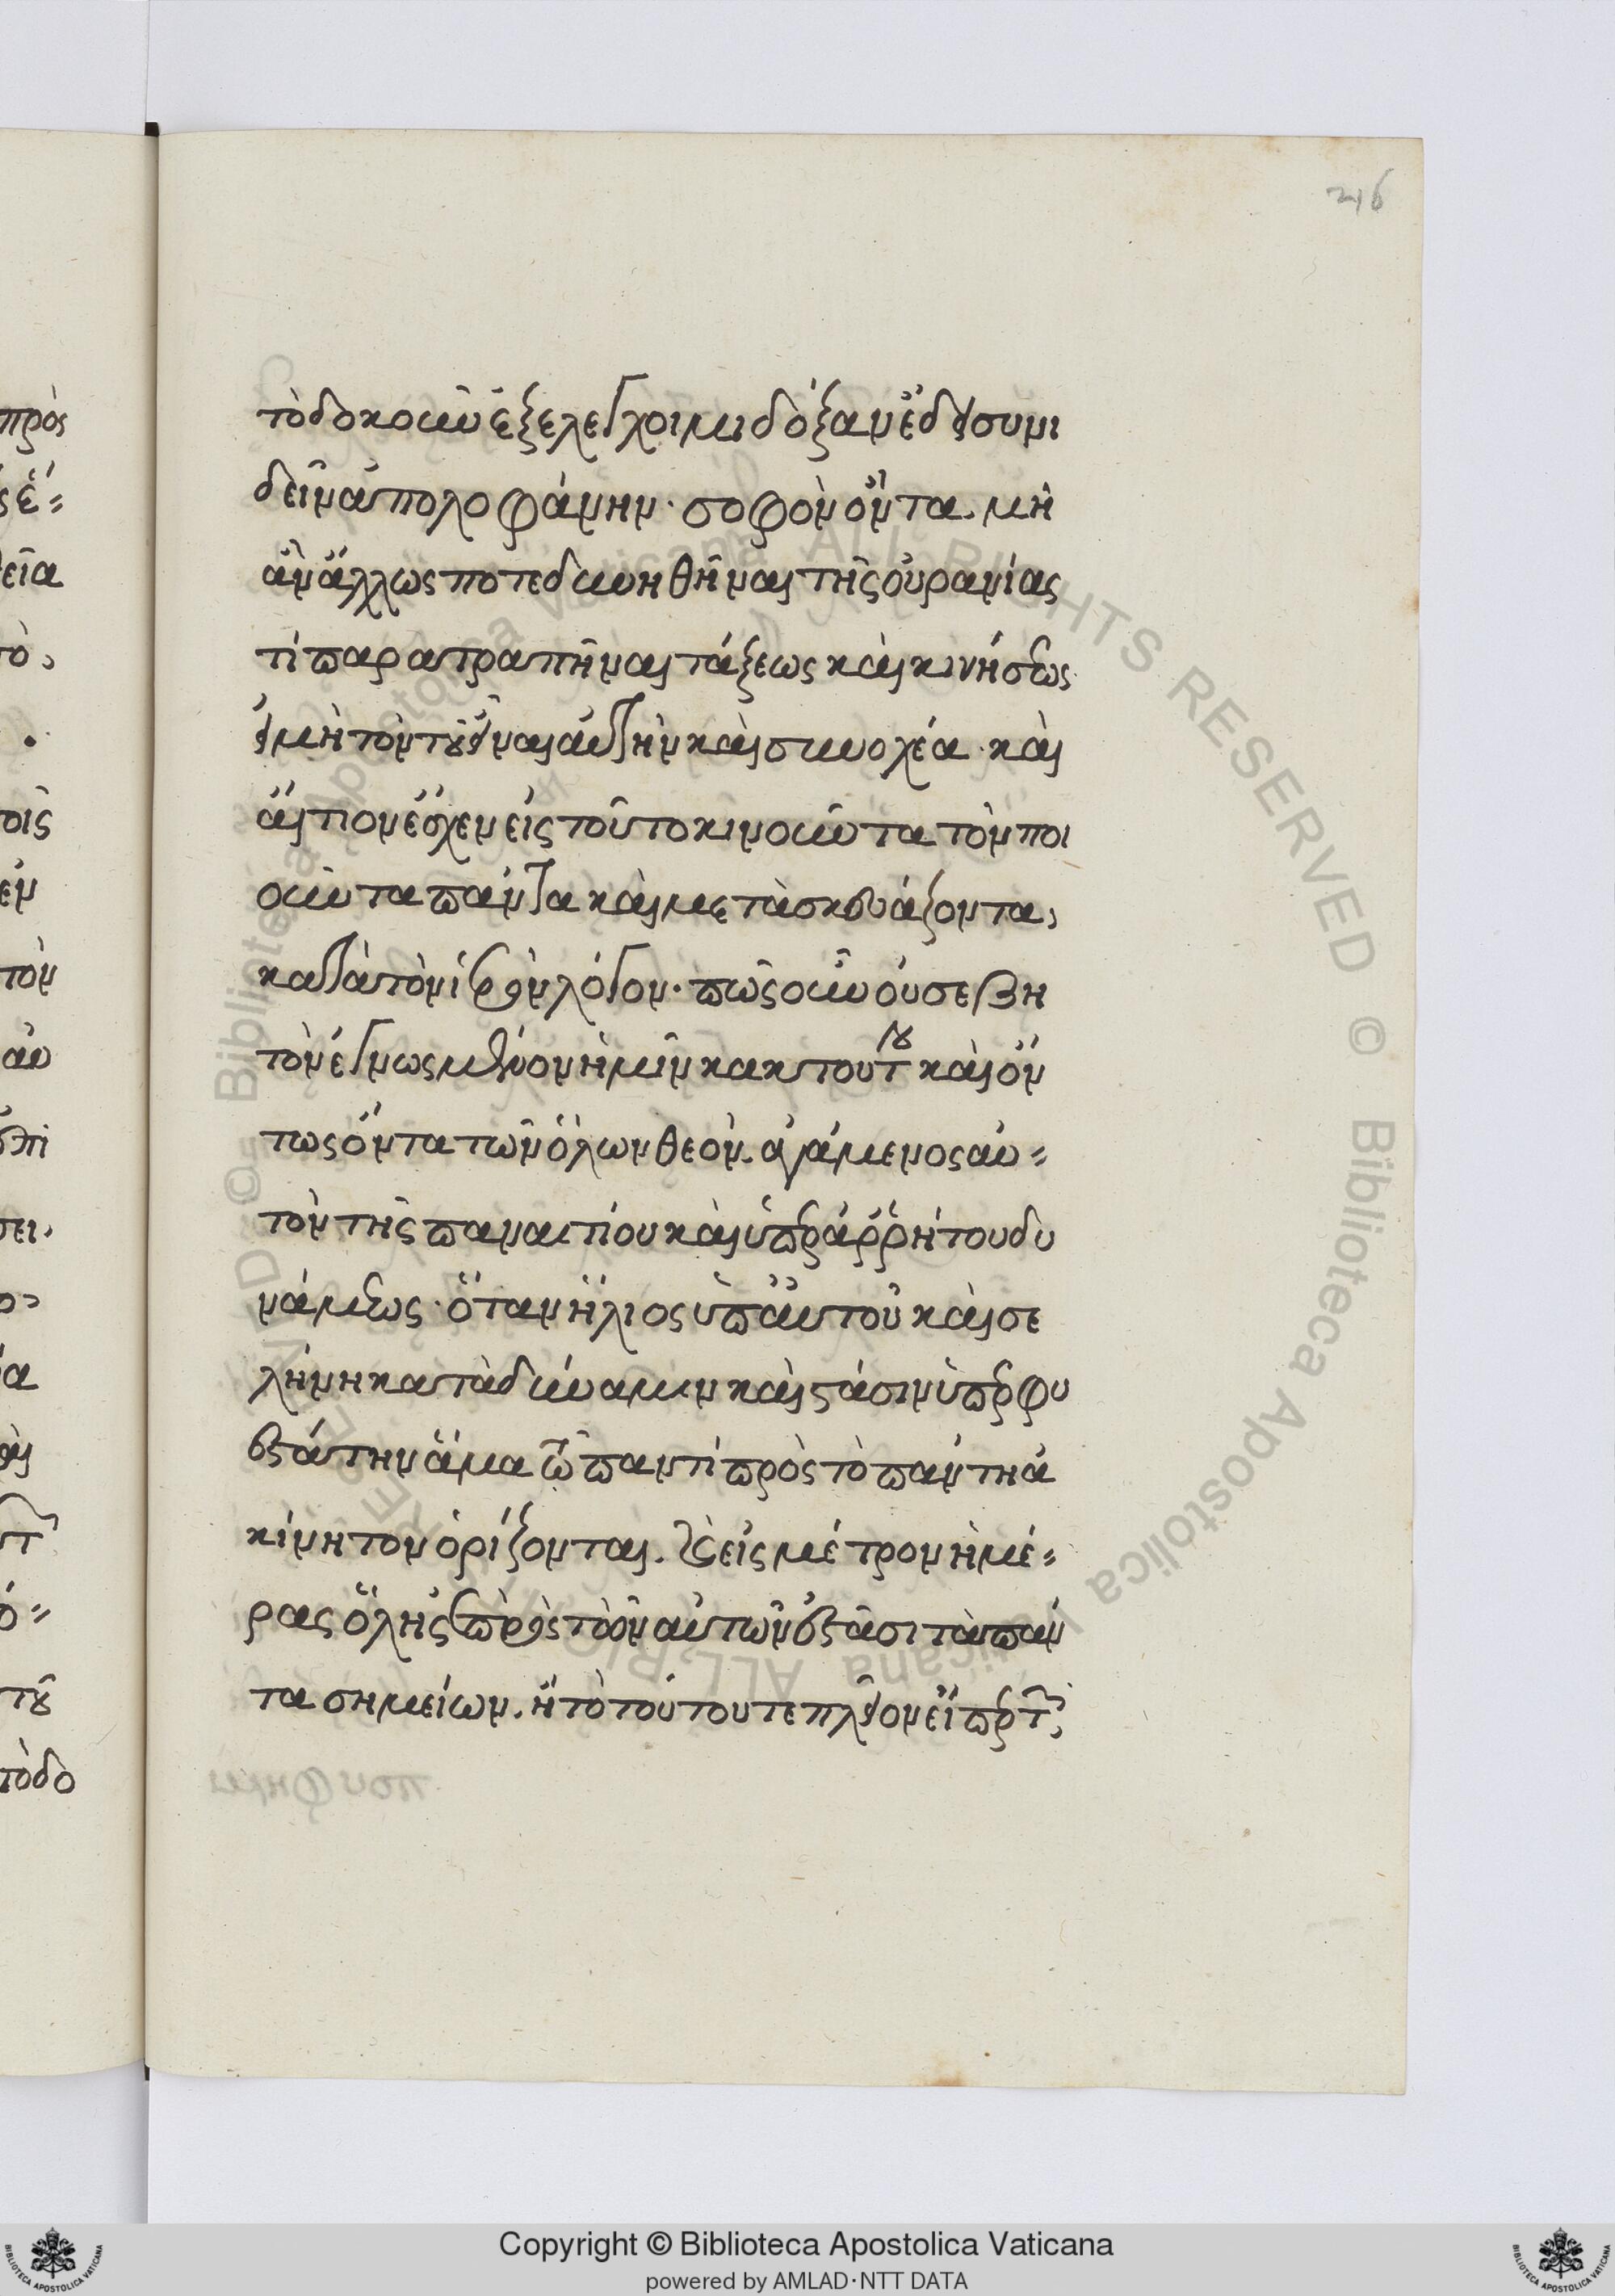 216
τὸ δοκοῦν ἐξελέγχοιμι δόξαν. ἔδει συνι
δεῖν ἀπολοφάνην· σοφὸν ὄντα. μὴ
ἂν ἄλλως ποτε δυνηθῆναι τῆς οὐρανίας
τὶ παρατραπῆναι τάξεως καὶ κινήσεως
εἰ μὴ τὸν τοῦ εἶναι αὐτὴν καὶ συνοχέα· καὶ
αἴτιον ἔσχεν εἰς τοῦτο κινοῦντα τὸν ποι
οῦντα πάντα καὶ μετασκευάζοντα,
κατὰ τὸν ἱερὸν λόγον· πῶς οὖν οὐ σέβη
τὸν ἐγνωσμένον ἡμῖν κακ τούτου καὶ ὄν
τως ὄντα τῶν ὅλων θεόν. ἀγάμενος αὐ=
τὸν τῆς παναιτίου καὶ ὑπεραρρήτου δυ
νάμεως· ὅταν ἥλιος ὑπ' αὐτοῦ καὶ σε
λήνη κατὰ δύναμιν καὶ στάσιν ὑπερφυ
εστάτην ἅμα τῷ παντὶ πρὸς τὸ πάντη ἀ
κίνητον ὁρίζονται. καὶ εἰς μέτρον ἡμέ=
ρας ὅλης ἐπὶ τῶν αὐτῶν ἑστᾶσι τὰ πάν
τα σημείων. ἢ τὸ τούτου τε πλεῖον εἴπερ τ
πρὸς
εῖα
τὸν
τοῦ
τὸ δο
Copyright © Biblioteca Apostolica Vaticana
powered by AMLAD·NTT DATA